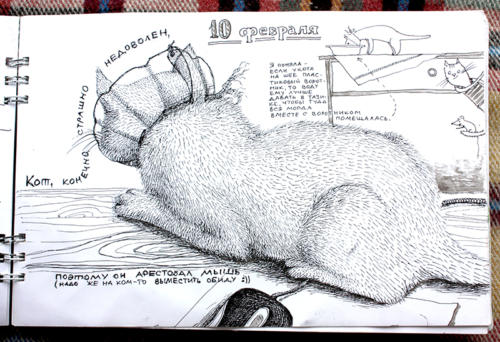 10 февраля
Я поняла -
если у кота
на шее плас-
тиковый ворот-
ник, то воду
ему лучше
давать в тази-
ке, чтобы туда
вся морда
вместе с воротником
помещалась.
Кот, конечно, страшно недоволен,
поэтому он арестовал мышь
(надо же на ком-то выместить обиду :))